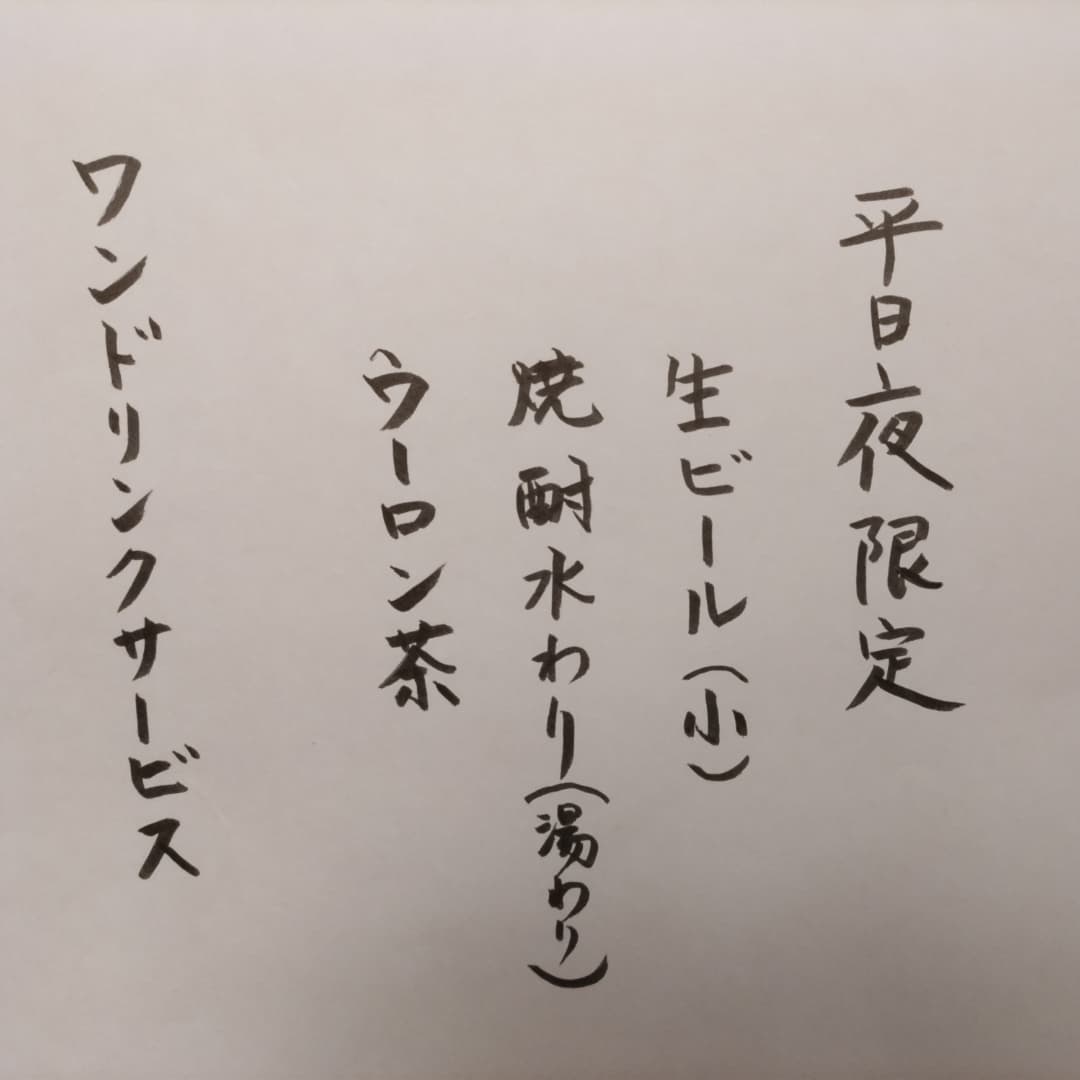 平日夜限定
生ビール(小)
焼酎水わり(湯わり)
ウーロン茶
ワンドリンクサービス